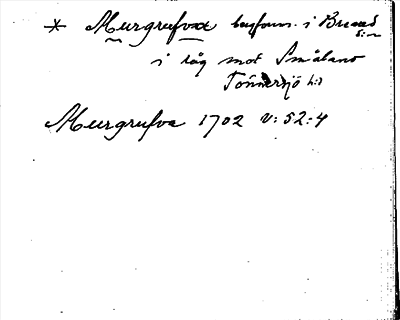 * Murgrufvor i Breared s:n
i råg mot Småland
Tönnersjö h:d
Murgrufva 1702 V:52:4